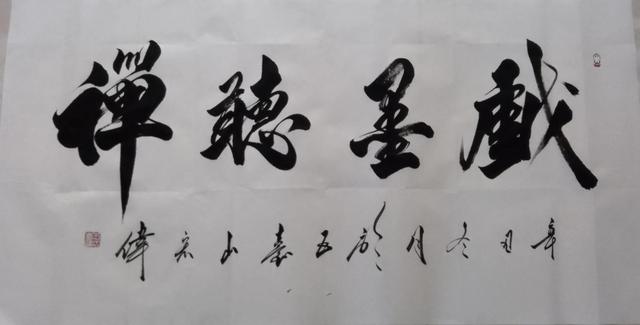 戲墨聽禪
辛丑冬月於五臺山 偉